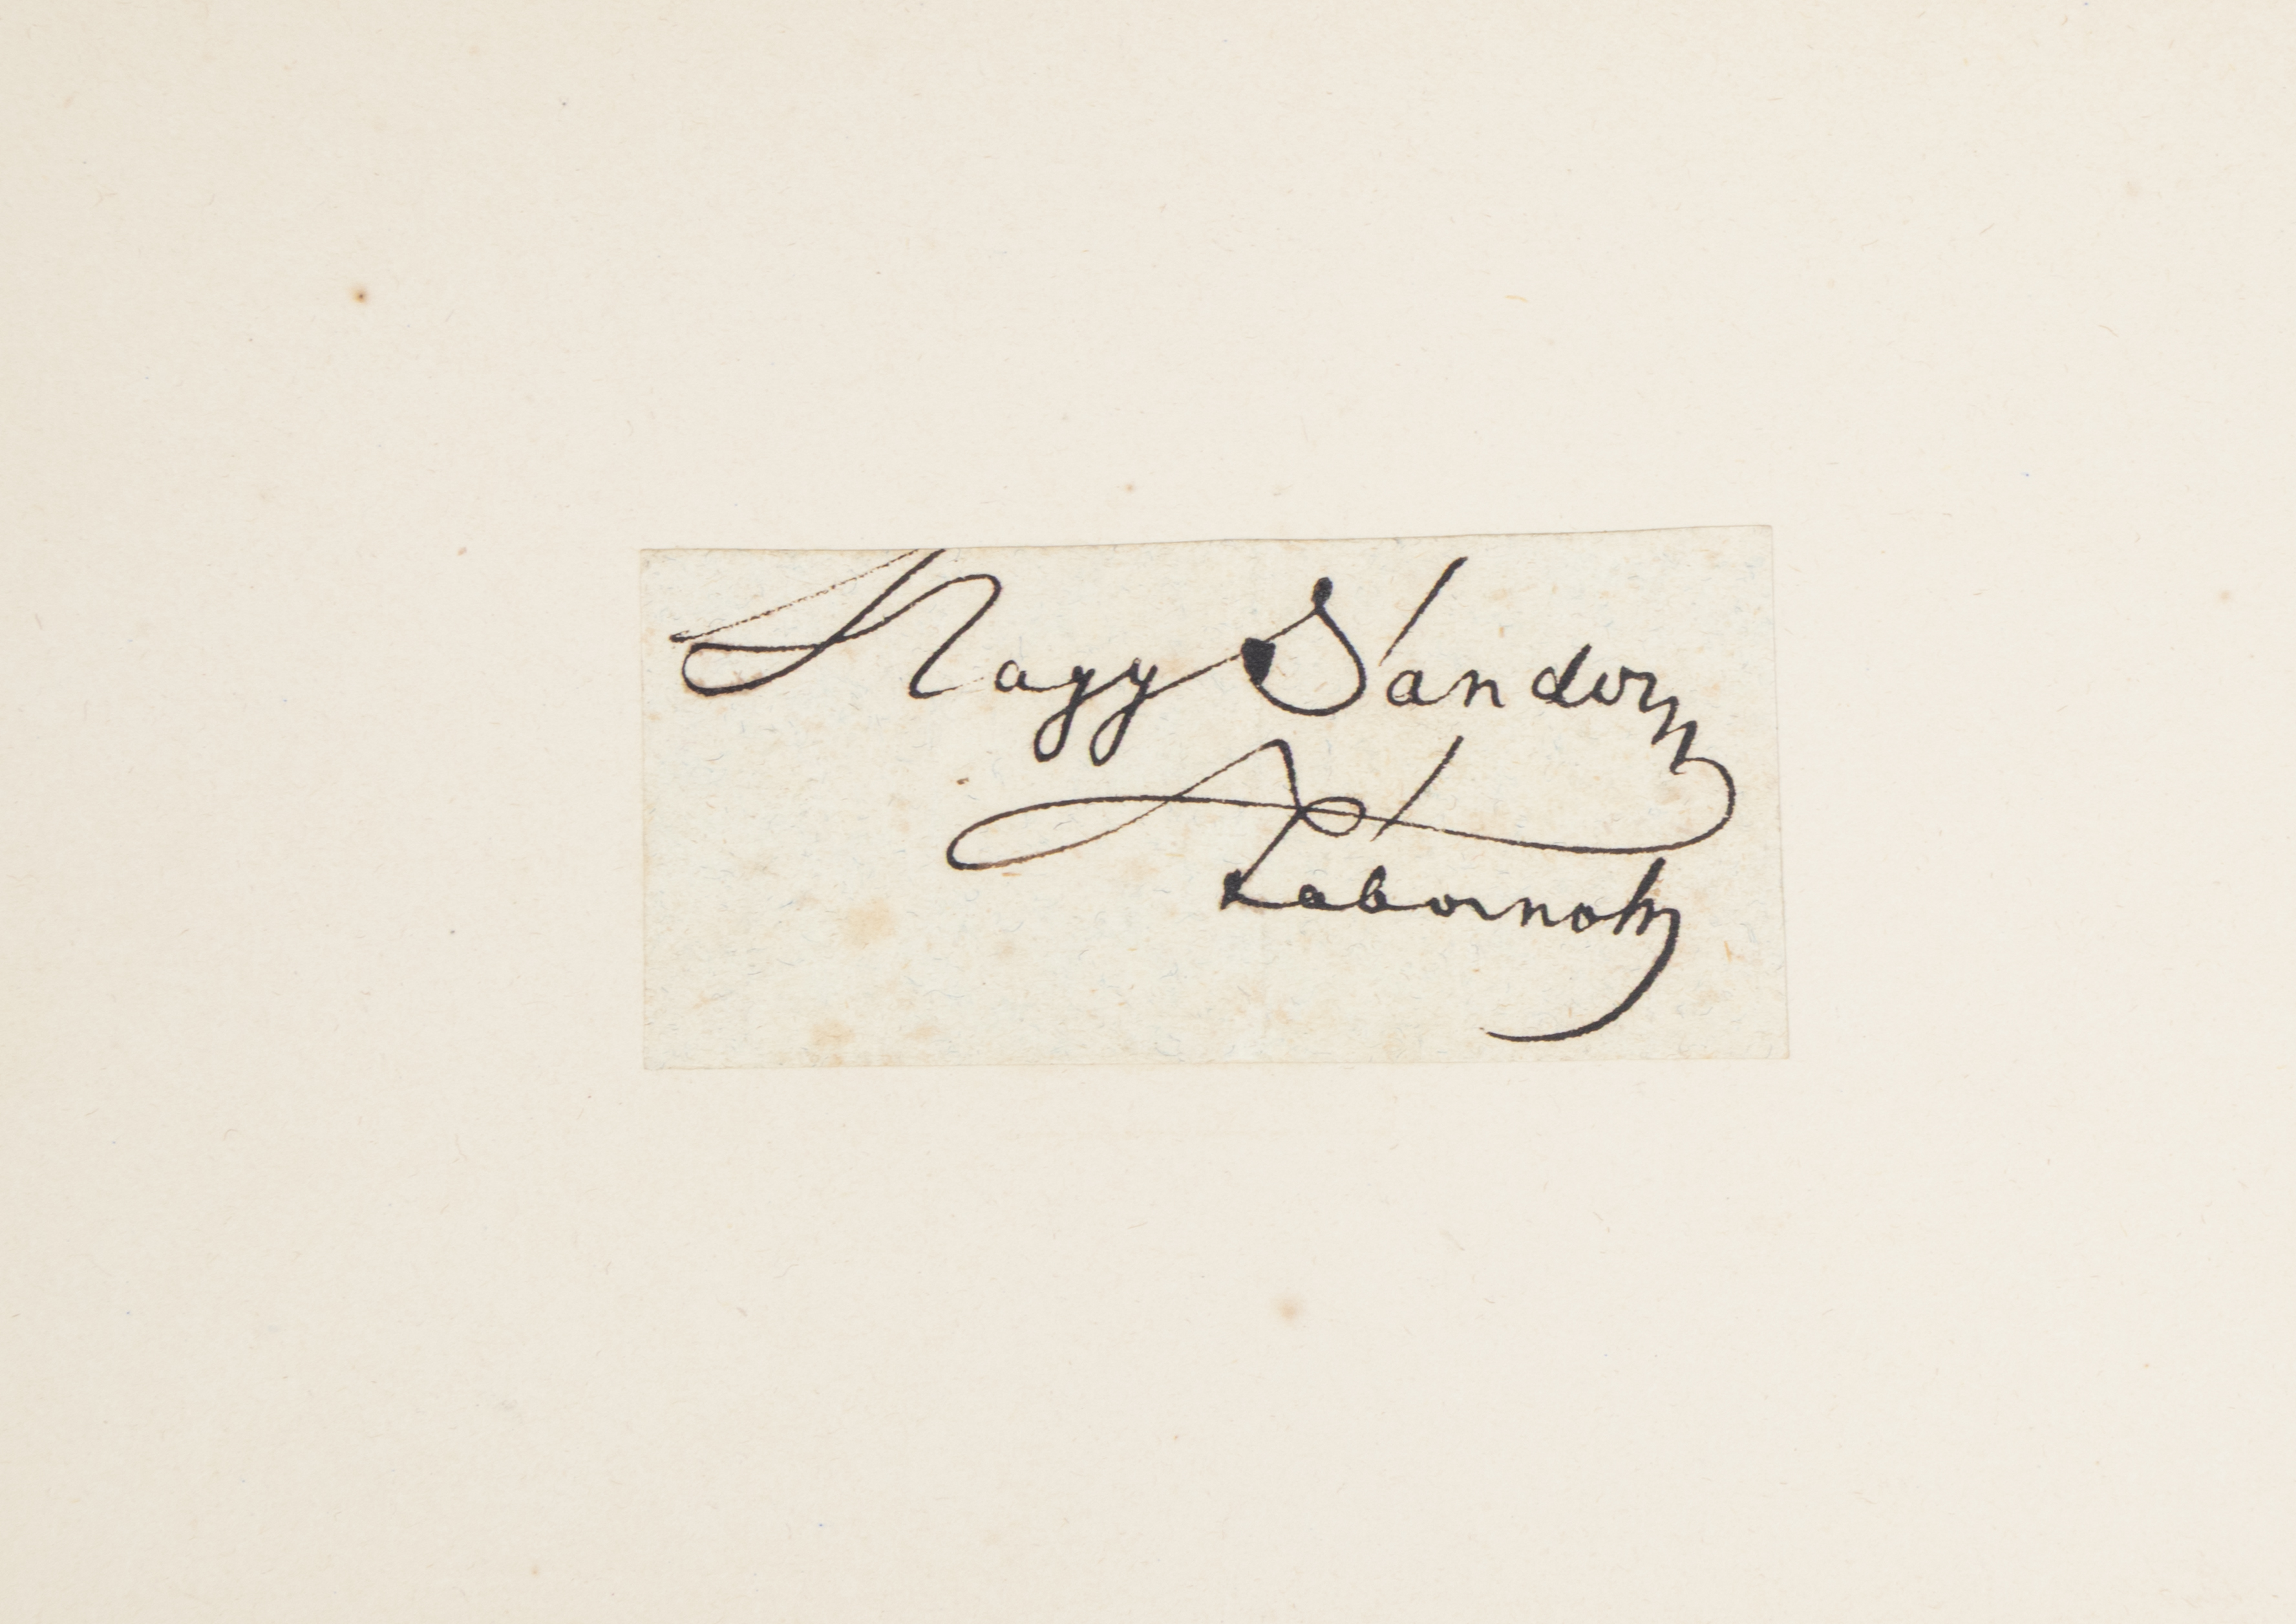 Nagy Sándor
Tábornok